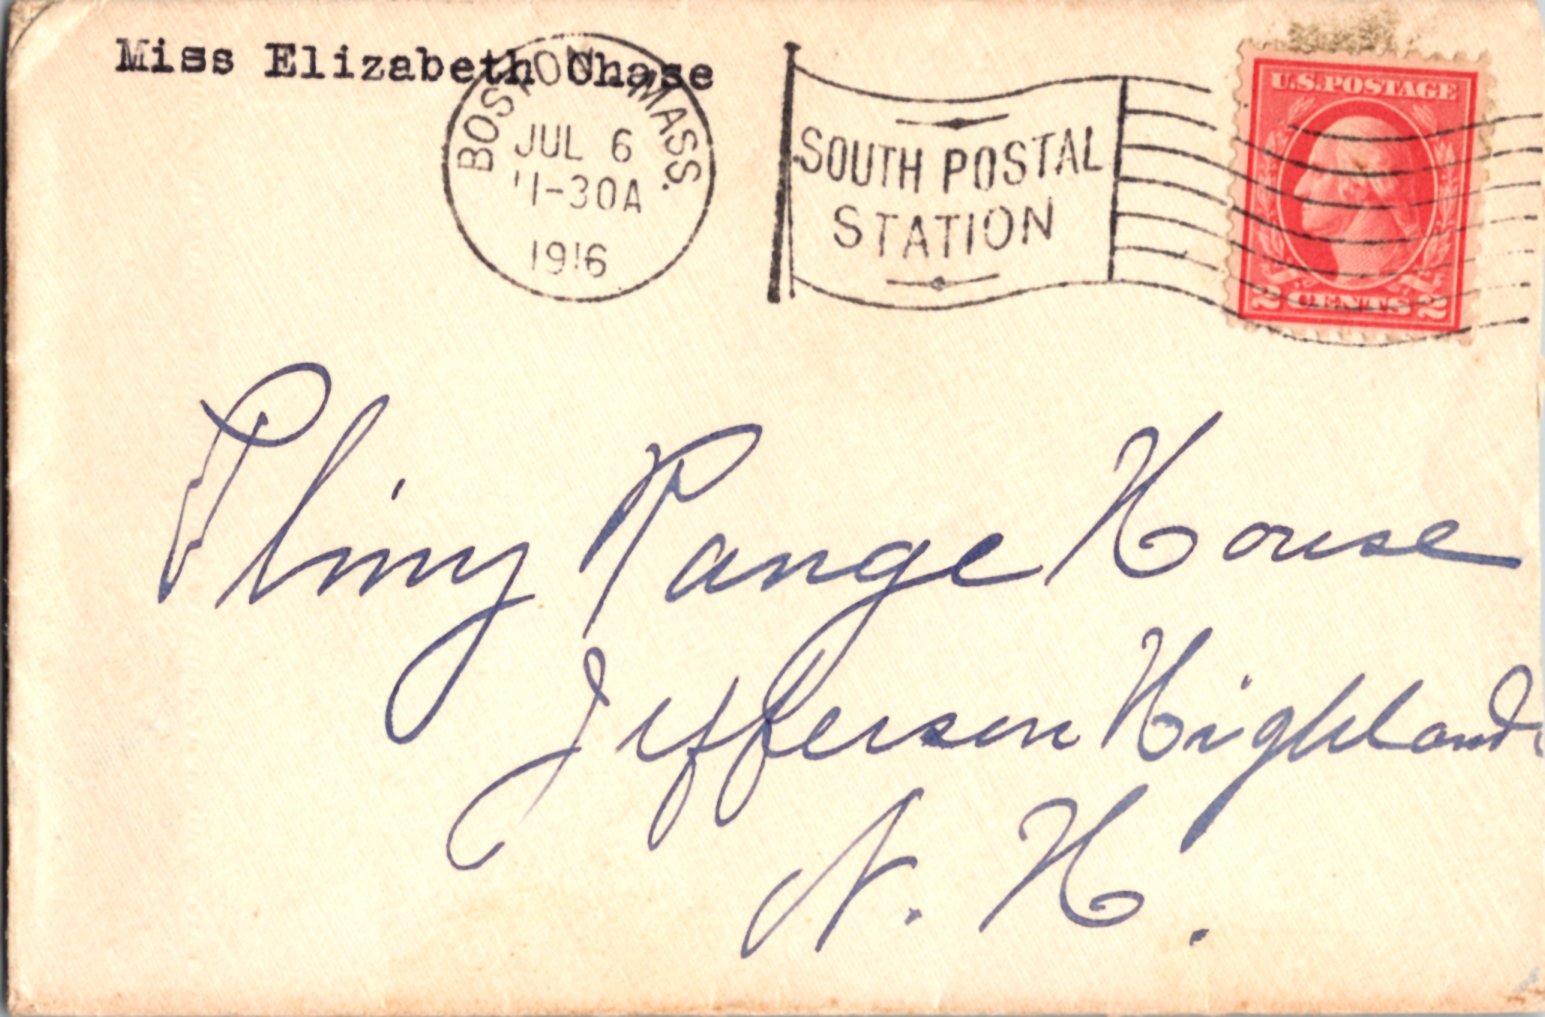 Miss Elizabeth Chase
BOSTON MASS.
JUL 6
11-30A
1916
SOUTH POSTAL
STATION
U.S.POSTAGE
2 CENTS 2
Pliny Range House
Jefferson Highlands
N. H.